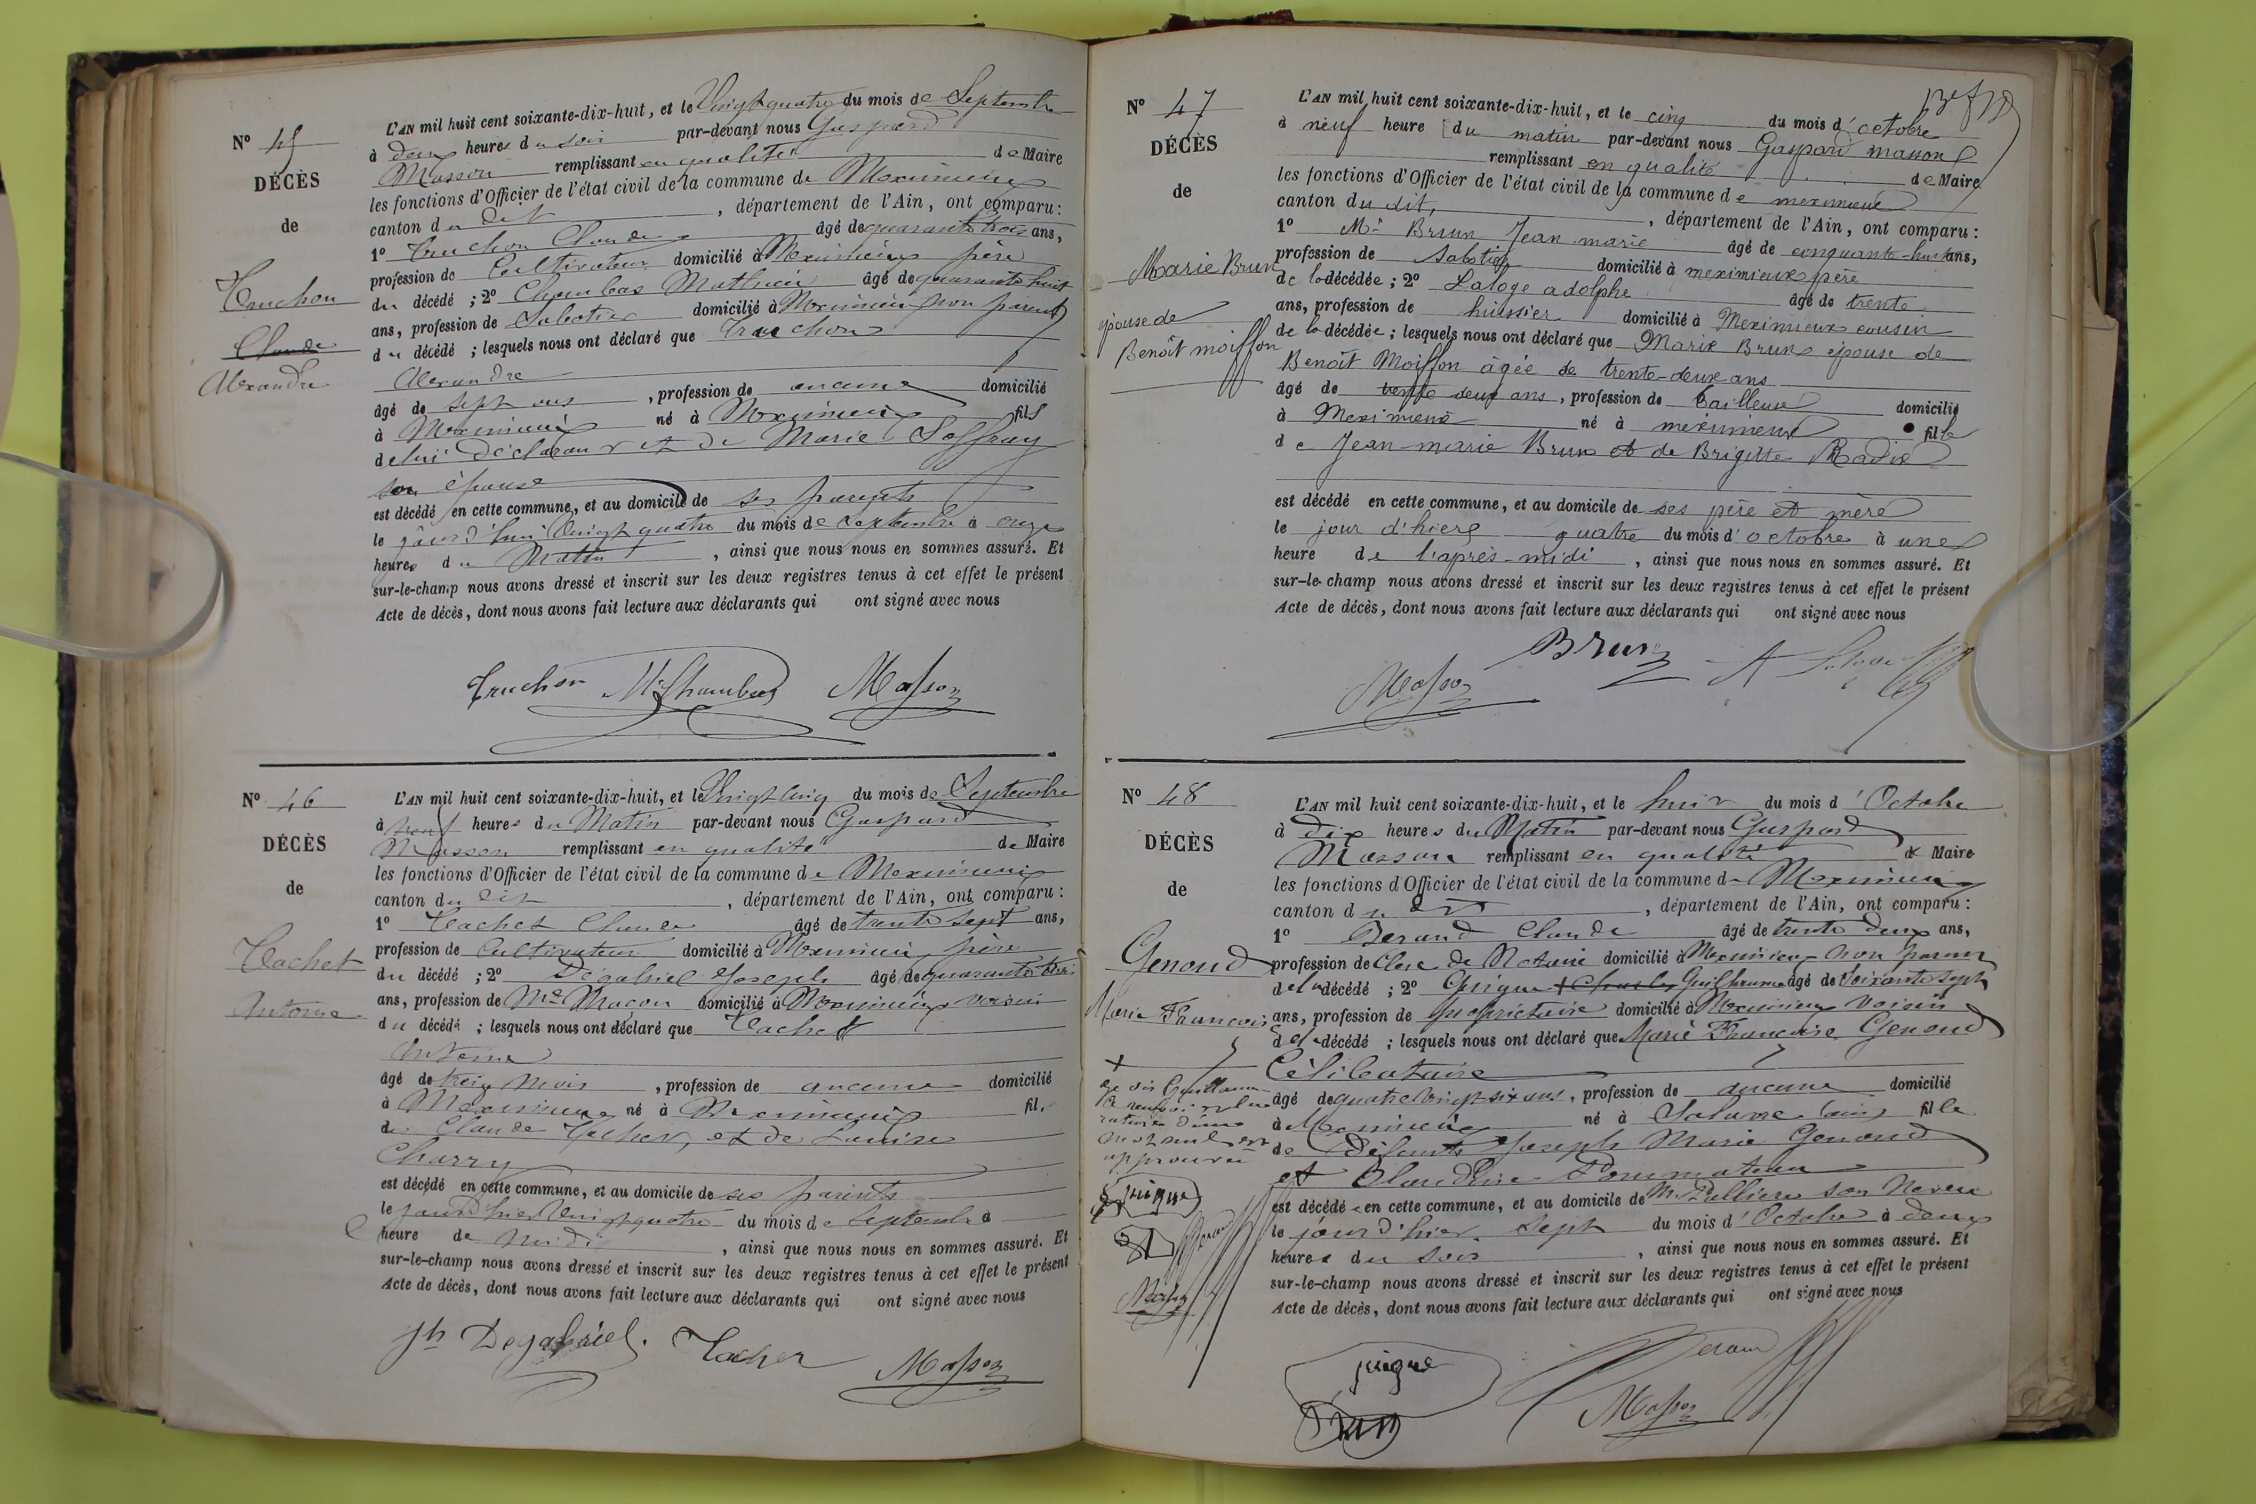 N° 45
DÉCÈS
de
Truchon
Claude
Alexandre
L'AN mil huit cent soixante-dix-huit, et le Vingt quatre du mois de Septembre
à deux heures du soir par-devant nous Gaspard
Masson remplissant en qualité de Maire
les fonctions d'Officier de l'état civil de la commune de Meximieux
canton du dit, département de l'Ain, ont comparu :
1° Truchon Claude âgé de quarante trois ans,
profession de Cultivateur domicilié à Meximieux père
du décédé ; 2° Chambas Mathieu âgé de quarante huit
ans, profession de Sabotier domicilié à Meximieux non parent
du décédé ; lesquels nous ont déclaré que Truchon
Alexandre
âgé de sept ans, profession de aucune domicilié
à Meximieux né à Meximieux fils
de lui déclarant et de Marie Soffray
son épouse
est décédé en cette commune, et au domicile de ses parents
le jourd'hui Vingt quatre du mois de Septembre à onze
heures du Matin, ainsi que nous nous en sommes assuré. Et
sur-le-champ nous avons dressé et inscrit sur les deux registres tenus à cet effet le présent
Acte de décès, dont nous avons fait lecture aux déclarants qui ont signé avec nous
Truchon M. Chambas Masson
N° 46
DÉCÈS
de
Tachet
Antoine
L'AN mil huit cent soixante-dix-huit, et le Vingt cinq du mois de Septembre
à neuf heures du Matin par-devant nous Gaspard
Masson remplissant en qualité de Maire
les fonctions d'Officier de l'état civil de la commune de Meximieux
canton du dit, département de l'Ain, ont comparu :
1° Tachet Claude âgé de trente sept ans,
profession de Cultivateur domicilié à Meximieux père
du décédé ; 2° Dégabriel Joseph âgé de quarante
ans, profession de Me Maçon domicilié à Meximieux voisin
du décédé ; lesquels nous ont déclaré que Tachet
Antoine
âgé de treize Mois, profession de aucune domicilié
à Meximieux né à Meximieux fils
de Claude Tachet, et de Louise
Charry
est décédé en cette commune, et au domicile de ses parents
le jourd'hier Vingt quatre du mois de Septembre à
heure de Midi, ainsi que nous nous en sommes assuré. Et
sur-le-champ nous avons dressé et inscrit sur les deux registres tenus à cet effet le présent
Acte de décès, dont nous avons fait lecture aux déclarants qui ont signé avec nous
Jh Degabriel. Tachet Masson
N° 47
DÉCÈS
de
Marie Brun
épouse de
Benoît moiffon
L'AN mil huit cent soixante-dix-huit, et le cinq du mois d'octobre
à neuf heure du matin par-devant nous Gaspard masson
remplissant en qualité de Maire
les fonctions d'Officier de l'état civil de la commune de meximieux
canton du dit, département de l'Ain, ont comparu :
1° Mr Brun Jean marie âgé de cinquante-huit ans,
profession de Sabotier domicilié à meximieux père
de la décédée ; 2° Laloge adolphe âgé de trente
ans, profession de huissier domicilié à Meximieux cousin
de la décédée ; lesquels nous ont déclaré que Marie Brun épouse de
Benoît Moiffon âgée de trente-deux ans
âgé de trente deux ans, profession de tailleuse domicilié
à Meximieux né à meximieux fille
de Jean-marie Brun et de Brigitte Radix
est décédé en cette commune, et au domicile de ses père et mère
le jour d'hier quatre du mois d'octobre à une
heure de l'après-midi, ainsi que nous nous en sommes assuré. Et
sur-le-champ nous avons dressé et inscrit sur les deux registres tenus à cet effet le présent
Acte de décès, dont nous avons fait lecture aux déclarants qui ont signé avec nous
Masson Brun A Laloge
N° 48
DÉCÈS
de
Genoud
Marie Françoise
L'AN mil huit cent soixante-dix-huit, et le huit du mois d'Octobre
à dix heures du Matin par-devant nous Gaspard
Masson remplissant en qualité de Maire
les fonctions d'Officier de l'état civil de la commune de Meximieux
canton du dit, département de l'Ain, ont comparu :
1° Berand Claude âgé de trente deux ans,
profession de Clerc de Notaire domicilié à Meximieux non parent
de la décédé ; 2° Guigue + Charles Guillaume âgé de Soixante sept
ans, profession de propriétaire domicilié à Meximieux Voisin
de la décédé ; lesquels nous ont déclaré que Marie Françoise Genoud
Célibataire
âgé de quatre Vingt six ans, profession de aucune domicilié
à Meximieux né à (ain) fille
de Défunts Joseph Marie Genoud
et Claudine
est décédé en cette commune, et au domicile de Mr Pullieu son Neveu
le jourd'hier Sept du mois d'Octobre à deux
heures du soir, ainsi que nous nous en sommes assuré. Et
sur-le-champ nous avons dressé et inscrit sur les deux registres tenus à cet effet le présent
Acte de décès, dont nous avons fait lecture aux déclarants qui ont signé avec nous
+
approuvé
guigue
Masson
guigue Berand
Masson